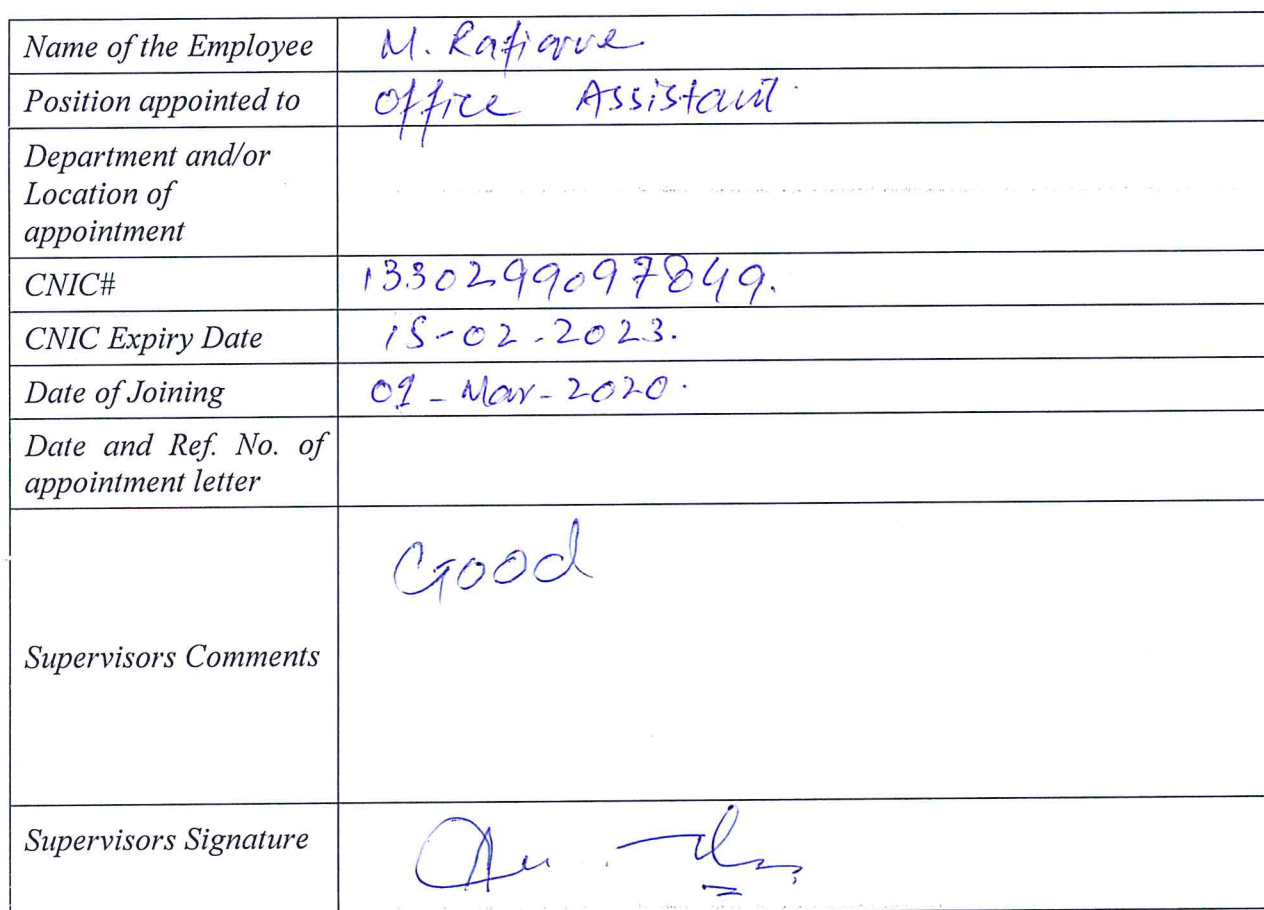 Name of the Employee M. Rafique
Position appointed to Office Assistant
Department and/or
Location of
appointment
CNIC# 1330299097849.
CNIC Expiry Date 15-02-2023.
Date of Joining 01-Mar-2020.
Date and Ref. No. of
appointment letter
Good
Supervisors Comments
Supervisors Signature